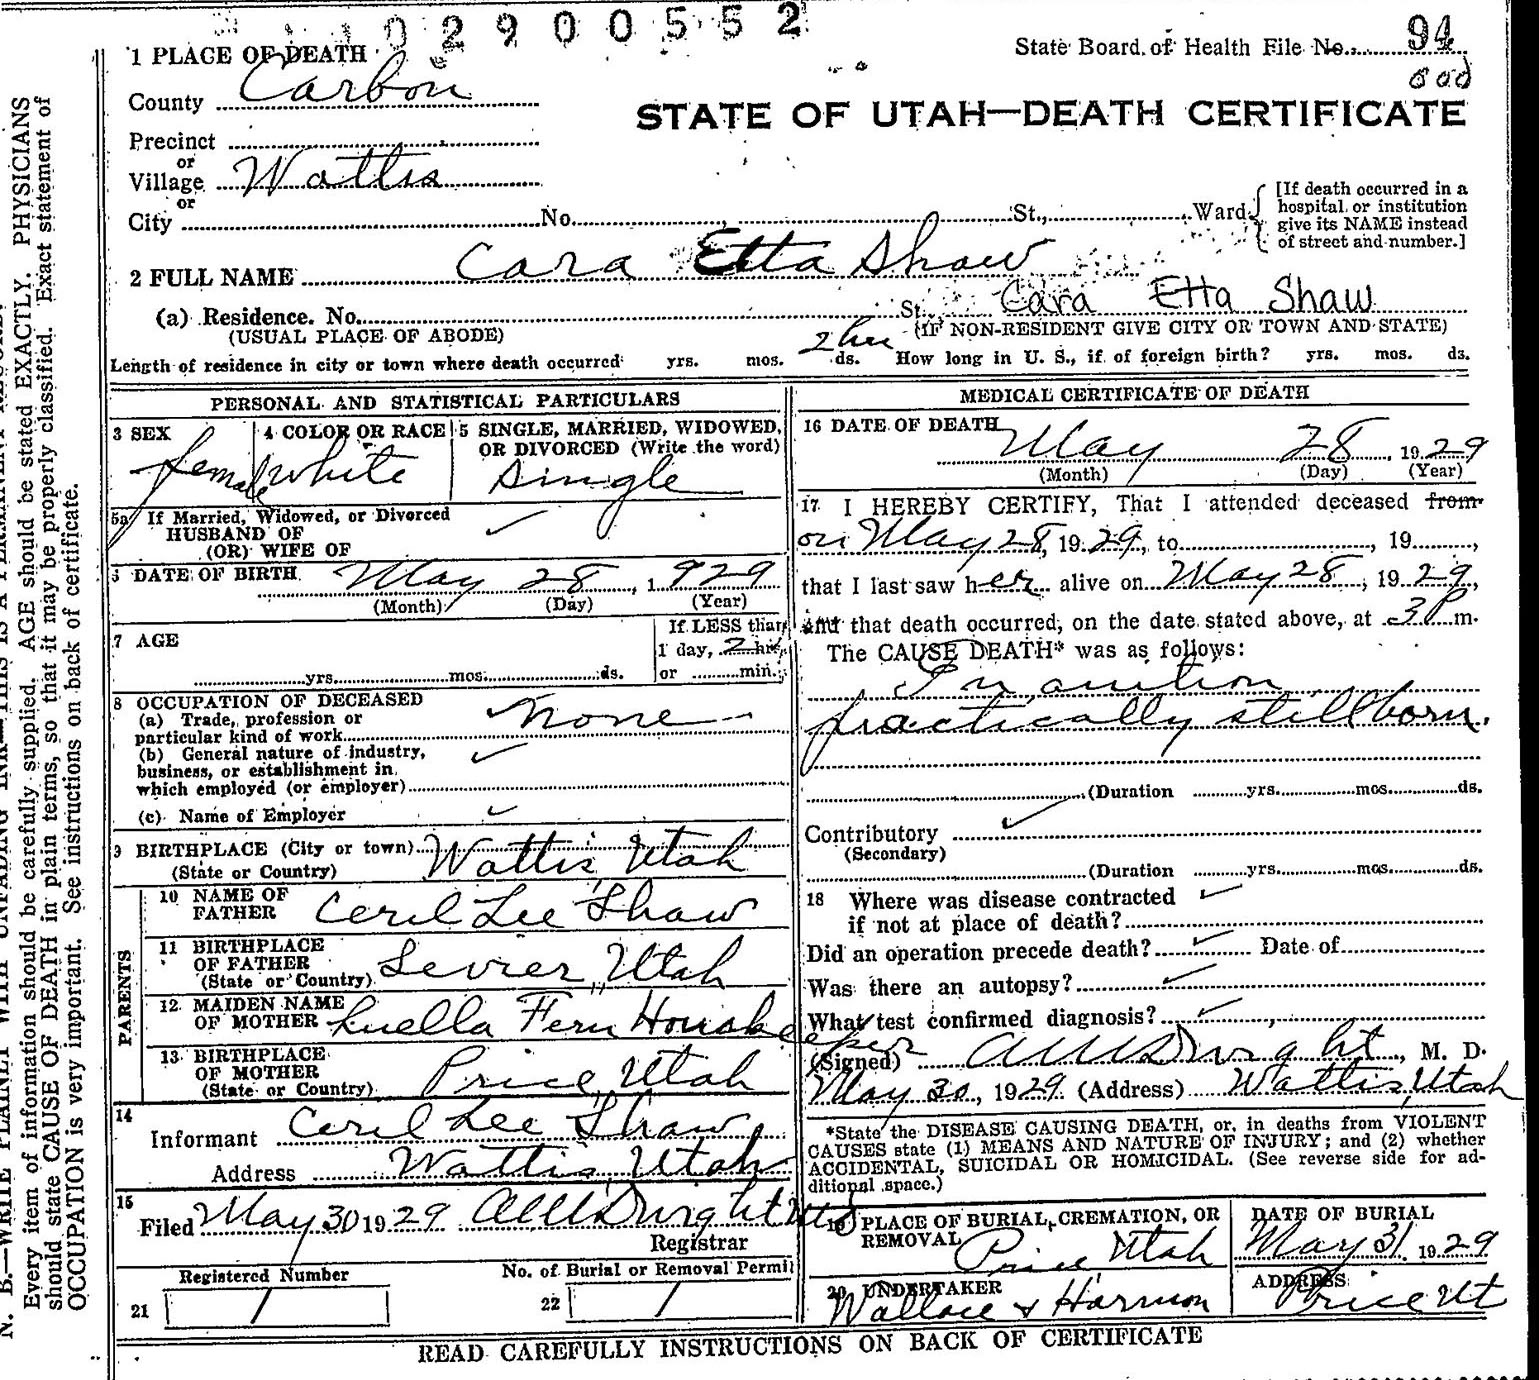 02900552
1 PLACE OF DEATH
State Board of Health File No. 94
County Carbon
STATE OF UTAH—DEATH CERTIFICATE
Precinct
or
Village Wattis
or
City No. St., Ward
[If death occurred in a hospital or institution give its NAME instead of street and number.]
2 FULL NAME Cara Etta Shaw
(a) Residence. No. St. Cara Etta Shaw
(USUAL PLACE OF ABODE) (IF NON-RESIDENT GIVE CITY OR TOWN AND STATE)
Length of residence in city or town where death occurred yrs. mos. 2 hrs ds. How long in U. S., if of foreign birth? yrs. mos. ds.
PERSONAL AND STATISTICAL PARTICULARS
3 SEX female
4 COLOR OR RACE white
5 SINGLE, MARRIED, WIDOWED, OR DIVORCED (Write the word) single
5a If Married, Widowed, or Divorced
HUSBAND OF
(OR) WIFE OF
6 DATE OF BIRTH May 28, 1929
(Month) (Day) (Year)
7 AGE yrs. mos. ds.
If LESS than
1 day, 2 hrs.
or min.
8 OCCUPATION OF DECEASED
(a) Trade, profession or
particular kind of work None
(b) General nature of industry,
business, or establishment in
which employed (or employer)
(c) Name of Employer
9 BIRTHPLACE (City or town) Wattis, Utah
(State or Country)
PARENTS
10 NAME OF FATHER Ceril Lee Shaw
11 BIRTHPLACE OF FATHER (State or Country) Sevier, Utah
12 MAIDEN NAME OF MOTHER Luella Fern Housekeeper
13 BIRTHPLACE OF MOTHER (State or Country) Price, Utah
14
Informant Ceril Lee Shaw
Address Wattis, Utah
15
Filed May 30 1929 Dwight
Registrar
Registered Number No. of Burial or Removal Permit
21 1 22 1
MEDICAL CERTIFICATE OF DEATH
16 DATE OF DEATH May 28, 1929
(Month) (Day) (Year)
17 I HEREBY CERTIFY, That I attended deceased from
on May 28, 1929, to , 19 ,
that I last saw her alive on May 28, 1929,
and that death occurred, on the date stated above, at 3 P m.
The CAUSE DEATH* was as follows:
Inanition
practically stillborn.
(Duration yrs. mos. ds.
Contributory
(Secondary)
(Duration yrs. mos. ds.
18 Where was disease contracted
if not at place of death?
Did an operation precede death? Date of
Was there an autopsy?
What test confirmed diagnosis?
(Signed) Dwight, M. D.
May 30, 1929 (Address) Wattis, Utah
*State the DISEASE CAUSING DEATH, or, in deaths from VIOLENT
CAUSES state (1) MEANS AND NATURE OF INJURY; and (2) whether
ACCIDENTAL, SUICIDAL OR HOMICIDAL. (See reverse side for ad-
ditional space.)
19 PLACE OF BURIAL, CREMATION, OR REMOVAL Price Utah
DATE OF BURIAL May 31 1929
20 UNDERTAKER Wallace & Harmon
ADDRESS Price Ut
READ CAREFULLY INSTRUCTIONS ON BACK OF CERTIFICATE
Every item of information should be carefully supplied. AGE should be stated EXACTLY. PHYSICIANS
should state CAUSE OF DEATH in plain terms, so that it may be properly classified. Exact statement of
OCCUPATION is very important. See instructions on back of certificate.